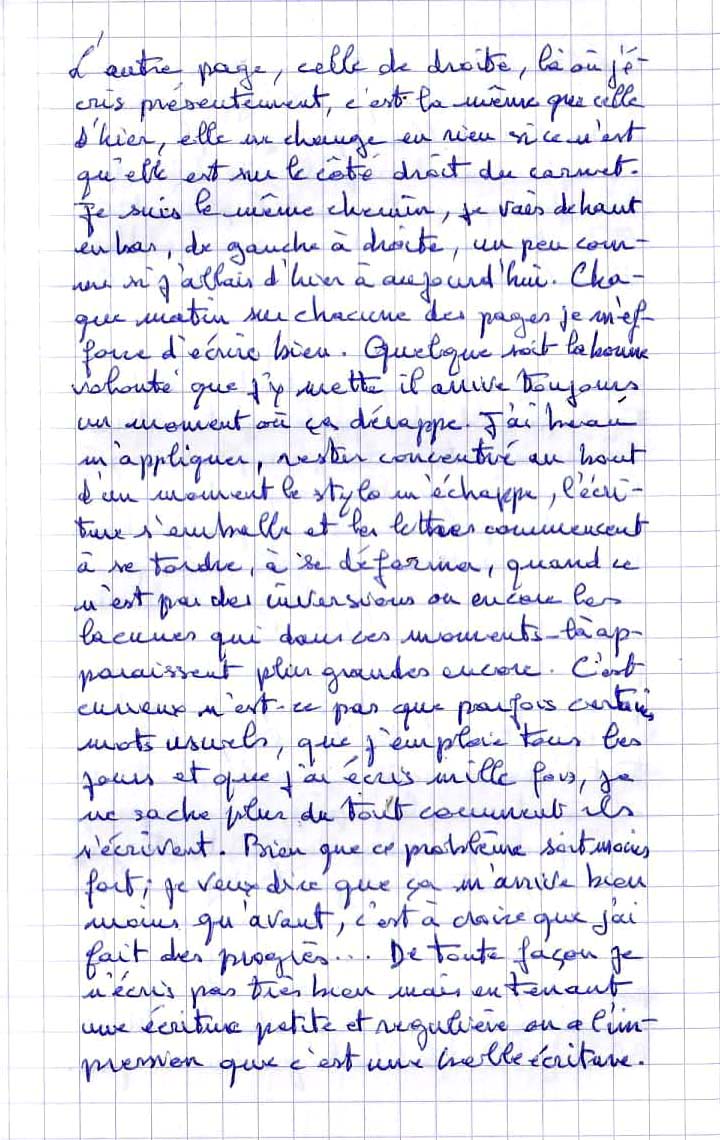 L'autre page, celle de droite, là où j'é-
cris présentement, c'est la même que celle
d'hier, elle ne change en rien si ce n'est
qu'elle est sur le côté droit du carnet.
Je suis le même chemin, je vais de haut
en bas, de gauche à droite, un peu com-
me si j'allais d'hier à aujourd'hui. Cha-
que matin sur chacune des pages je m'ef-
force d'écrire bien. Quelque soit la bonne
volonté que j'y mette il arrive toujours
un moment où ça dérappe. J'ai beau
m'appliquer, rester concentré au bout
d'un moment le stylo m'échappe, l'écri-
ture s'emballe et les lettres commencent
à se tordre, à se déformer, quand ce
n'est pas des inversions ou encore les
lacunes qui dans ces moments-là ap-
paraissent plus grandes encore. C'est
curieux n'est-ce pas que parfois certains
mots usuels, que j'emploie tous les
jours et que j'ai écris mille fois, je
ne sache plus du tout comment ils
s'écrivent. Bien que ce problème soit moins
fort, je veux dire que ça m'arrive bien
moins qu'avant, c'est à croire que j'ai
fait des progrès... De toute façon je
n'écris pas très bien mais en tenant
une écriture petite et regulière on a l'im-
pression que c'est une belle écriture.